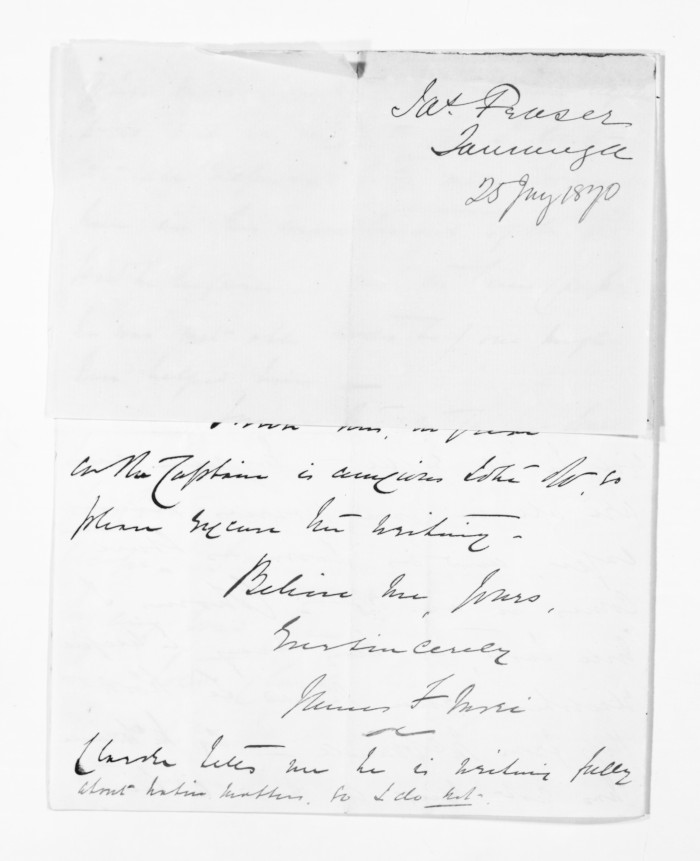 Jas. Fraser
Tauranga
25 July 1870
as the Captain is anxious to be off, so
please excuse the writing -
Believe me, Yours,
Ever sincerely
James F
Clarke tells me he is writing fully
about native matters, so I do not -